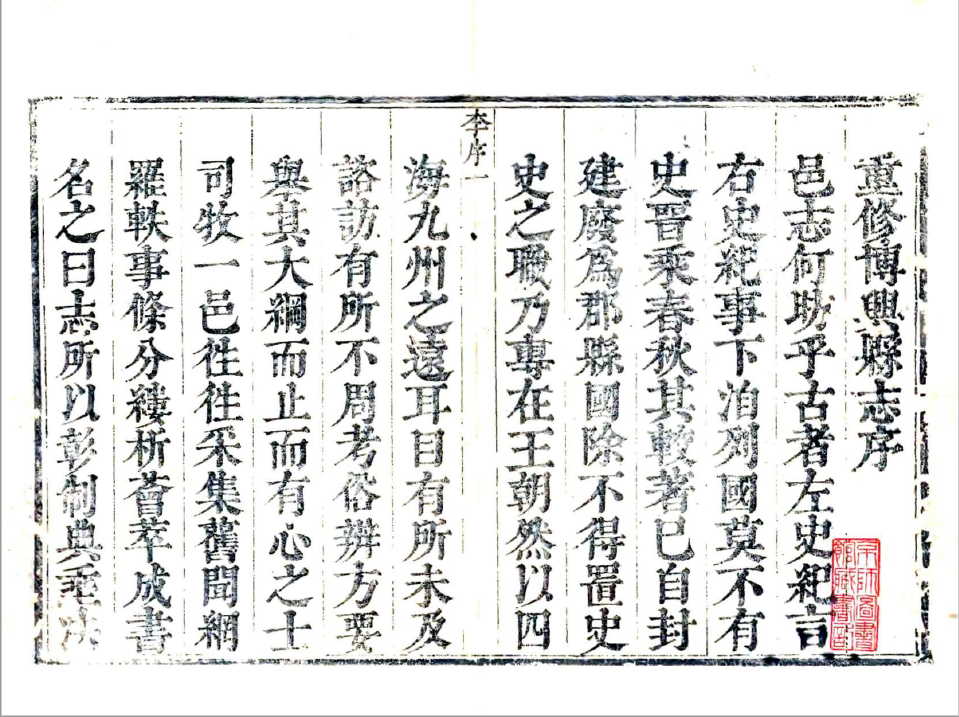 重修博興縣志序
邑志何昉乎古者左史紀言
右史紀事下洎列國莫不有
史晉乘春秋其較著已自封
建廢爲郡縣國除不得置史
史之職乃專在王朝然以四
李序一
海九州之遠耳目有所未及
諮訪有所不周考俗辨方要
舉其大綱而止而有心之士
司牧一邑徃徃采集舊聞網
羅軼事條分縷析薈萃成書
名之曰志所以彰制典垂